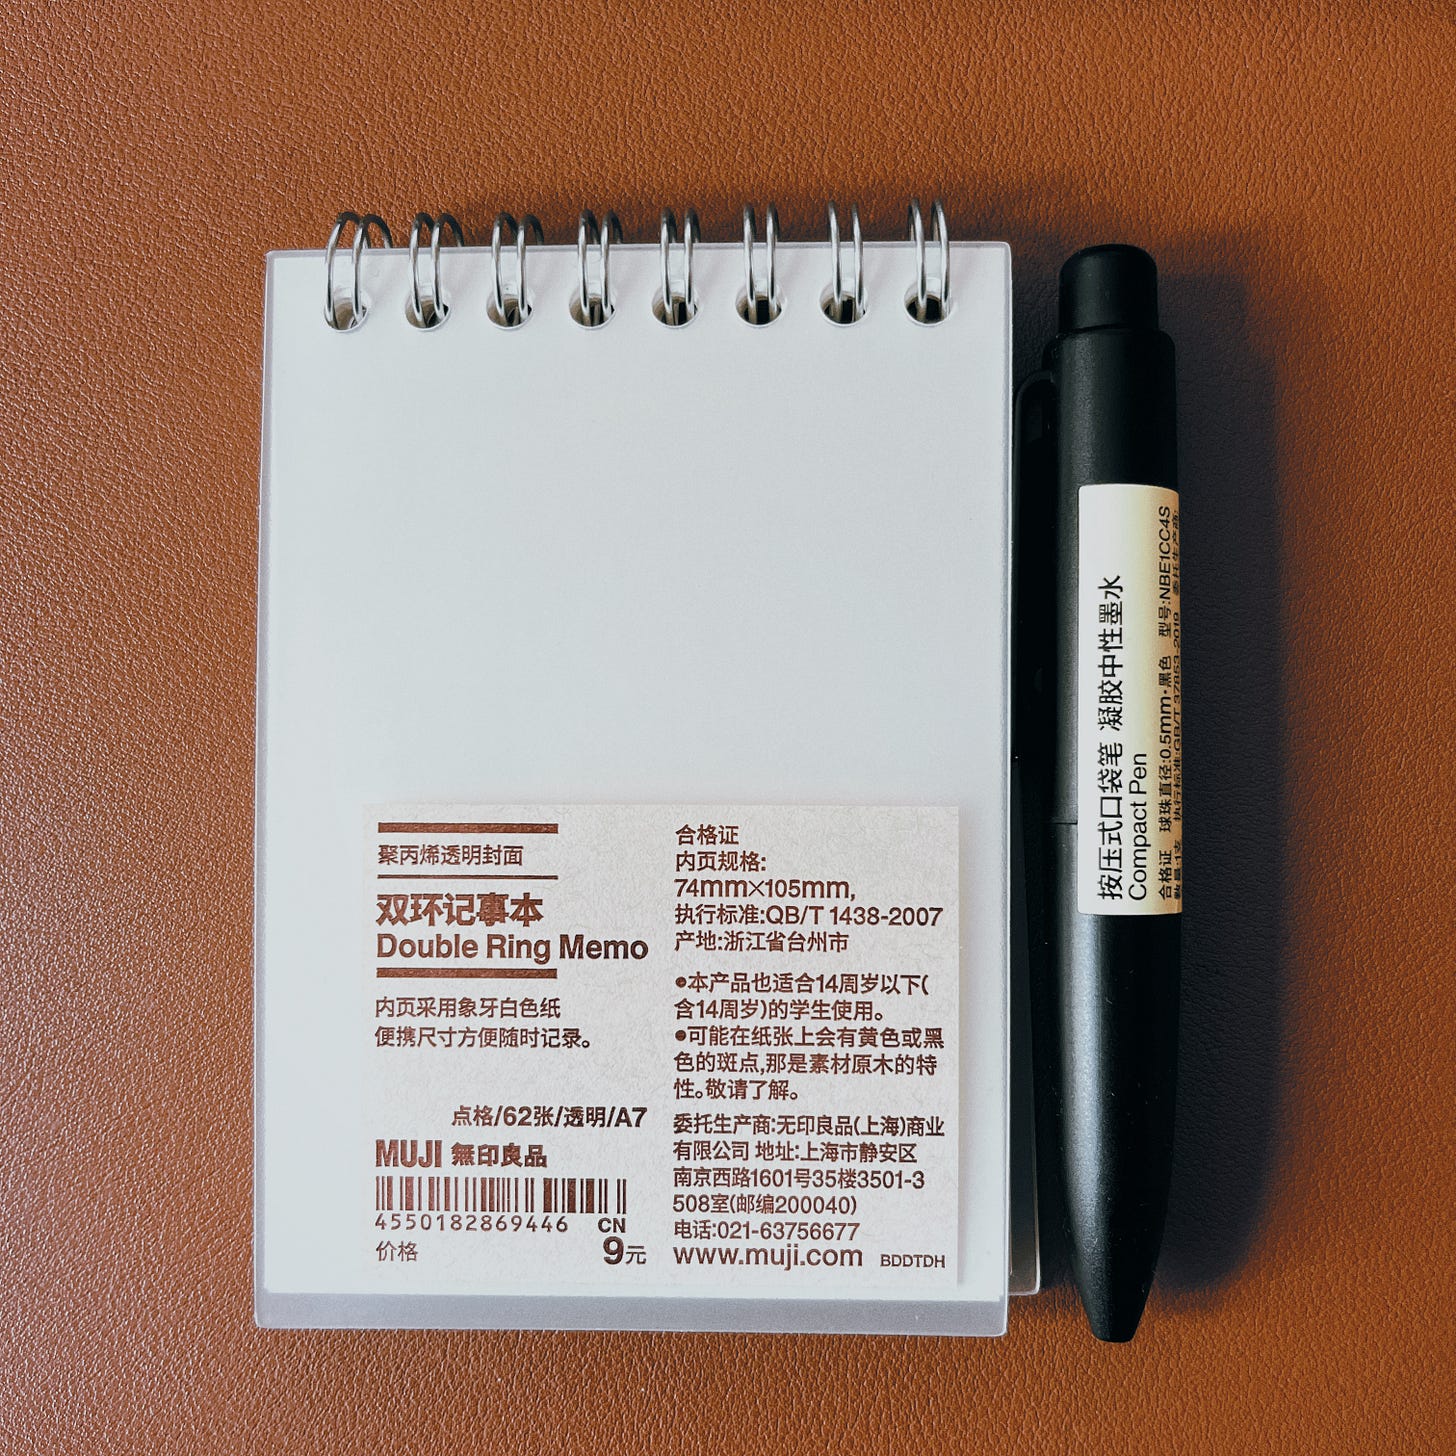 聚丙烯透明封面
双环记事本
Double Ring Memo
内页采用象牙白色纸
便携尺寸方便随时记录。
点格/62张/透明/A7
MUJI 無印良品
4550182869446 CN
价格 9元
合格证
内页规格:
74mm×105mm,
执行标准:QB/T 1438-2007
产地:浙江省台州市
●本产品也适合14周岁以下(
含14周岁)的学生使用。
●可能在纸张上会有黄色或黑
色的斑点,那是素材原木的特
性。敬请了解。
委托生产商:无印良品(上海)商业
有限公司 地址:上海市静安区
南京西路1601号35楼3501-3
508室(邮编200040)
电话:021-63756677
www.muji.com BDDTDH
按压式口袋笔 凝胶中性墨水
Compact Pen
合格证 球珠直径:0.5mm·黑色 型号:NBE1CC4S
数量:1支 执行标准:GB/T 37853-2019 委托生产商: